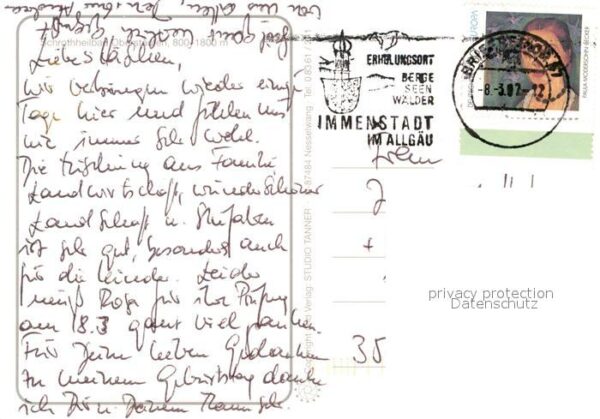 von uns allen,
Seid ganz herzlich gegrüßt
Schrothheilbad Oberstaufen, 800 - 1800 m
Liebes
wir verbringen wieder einige
Tage hier und fühlen uns
wie immer sehr wohl.
Die Mischung aus Familie
Landwirtschaft, wunderschöner
Landschaft u. Skifahren
ist sehr gut, besonders auch
für die Kinder. Leider
muß Rosa für ihre Prüfung
am 8.3 ganz viel pauken.
Für Deine lieben Gedanken
zu meinem Geburtstag danke
ich Dir u. Deinem Mann sehr.
Verlag: STUDIO TANNER · 87484 Nesselwang · Tel.
ERHOLUNGSORT
BERGE
SEEN
WÄLDER
IMMENSTADT
IM ALLGÄU
BRIEFZENTRUM 87
-8-3.02-12
PAULA MODERSOHN-BECKER
Frau
35
privacy protection
Datenschutz